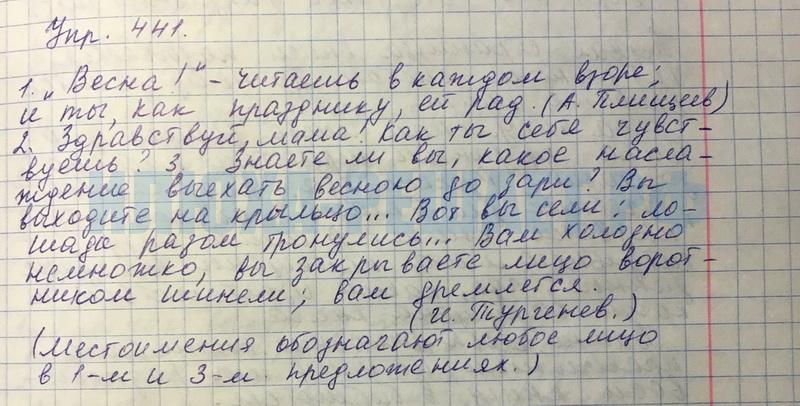 Упр. 441.
1. „Весна!" – читаешь в каждом взоре;
и ты, как празднику, ей рад. (А. Плещеев)
2. Здравствуй, мама! Как ты себе чувст-
вуешь? 3. Знаете ли вы, какое насла-
ждение выехать весною до зари? Вы
выходите на крыльцо... Вот вы сели; ло-
шади разом тронулись... Вам холодно
немножко, вы закрываете лицо ворот-
ником шинели; вам дремлется.
(И. Тургенев.)
(Местоимения обозначают любое лицо
в 1-м и 3-м предложениях.)